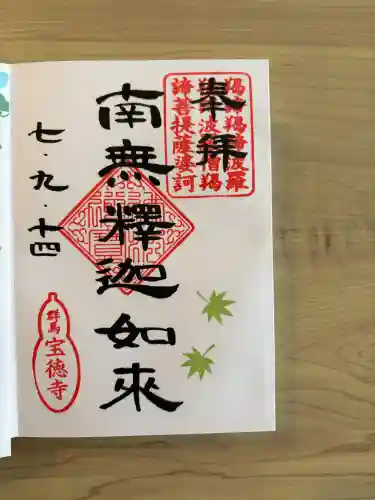 奉拝
羯諦羯諦波羅
羯諦波羅僧羯
諦菩提薩婆訶
南無釋迦如来
七・九・十四
群馬
宝徳寺